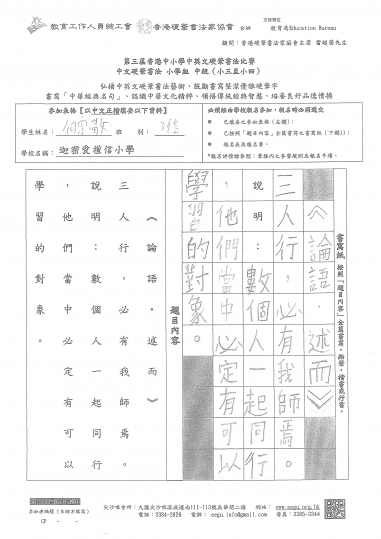 教育工作人員總工會 香港硬筆書法家協會 合辦
支持單位
教育局Education Bureau
顧問：香港硬筆書法家協會主席
第三屆香港中小學中英文硬筆書法比賽
中文硬筆書法 小學組 中級（小三至小四）
弘揚中英文硬筆書法藝術、鼓勵書寫整潔優雅硬筆字
書寫「中華經典名句」、認識中華文化精粹、領悟傳統經典智慧、培養良好品德情操
參加表格【以中文正楷填妥以下資料】
學生姓名：
班別：
學校名稱：迦密愛禮信小學
必須經由學校報名參加，報名時必須遞交
已填妥之參加表格（左欄）；
已按照「題目內容」全篇書寫之書寫紙（下欄）；
報名表及報名費。
書寫紙 按照「題目內容」全篇書寫，楷書或行書。
《論語．述而》
三人行，必有我師焉。
說明：數個人一起同行
，他們當中必定有可以
學習的對象。
題目內容
《論語．述而》
三人行，必有我師焉。
說明：數個人一起同行
，他們當中必定有可以
學習的對象。
參加者編號（主辦方填寫）
CP - -
尖沙咀會所：九龍尖沙咀漆咸道南111-113號 網址：www.eegu.org.hk
電話：2384-2026 電郵：eegu.info@gmail.com 傳真：2385-3344